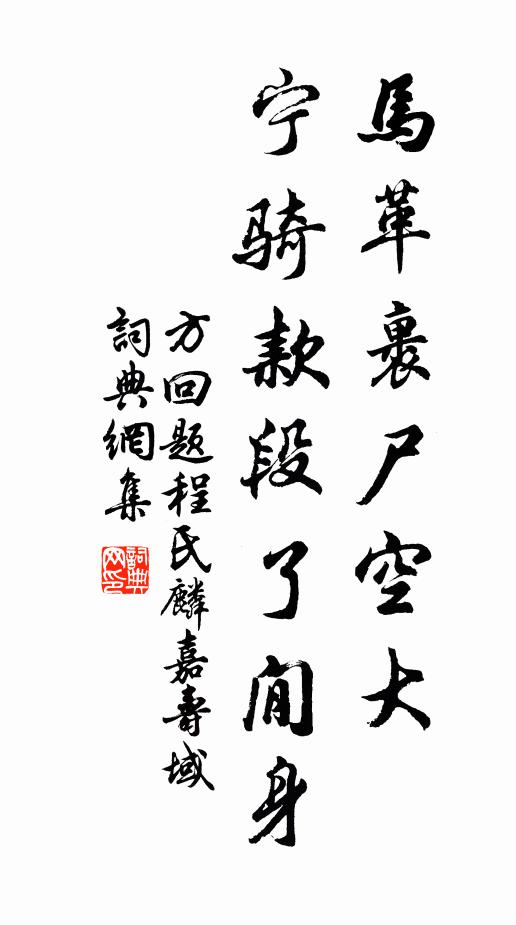 馬革裹尸空大
宁骑款段了閒身
方回题程氏麟嘉壽域
詞典網集
詞典网印